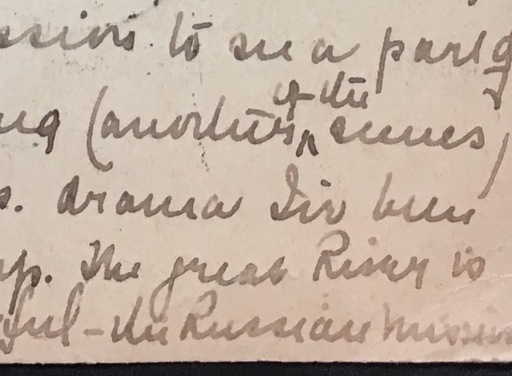 ssion to see a part of
ng (another of the scenes)
s. drama I've been
up. The great River is
ful - the Russian Mission